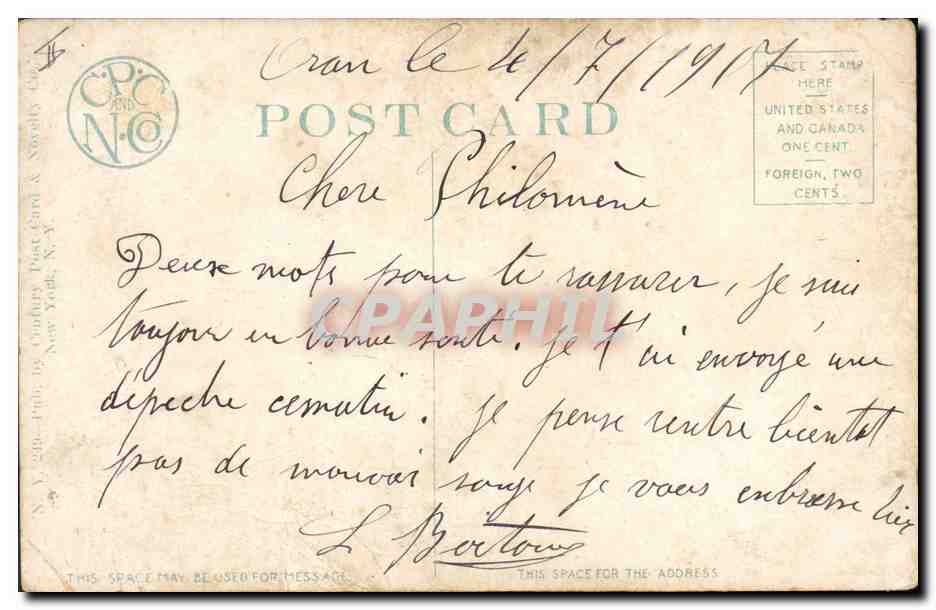 Oran le 4/7/1907
C.P.C
AND
N.Co
POST CARD
PLACE STAMP
HERE
UNITED STATES
AND CANADA
ONE CENT
FOREIGN, TWO
CENTS.
N. Y. 249—Pub. by Century Post Card & Novelty Co.
New York, N. Y.
Chere Philomène
Deuxe mots pour te rassurer, je suis
toujour en bonne senté. je t'ai envoyé une
dépeche cematin. je pense rentre bientot
pas de mouvai songe je vous enbrasse bien
L Bertou
CPAPHIL
THIS SPACE MAY BE USED FOR MESSAGE.
THIS SPACE FOR THE ADDRESS